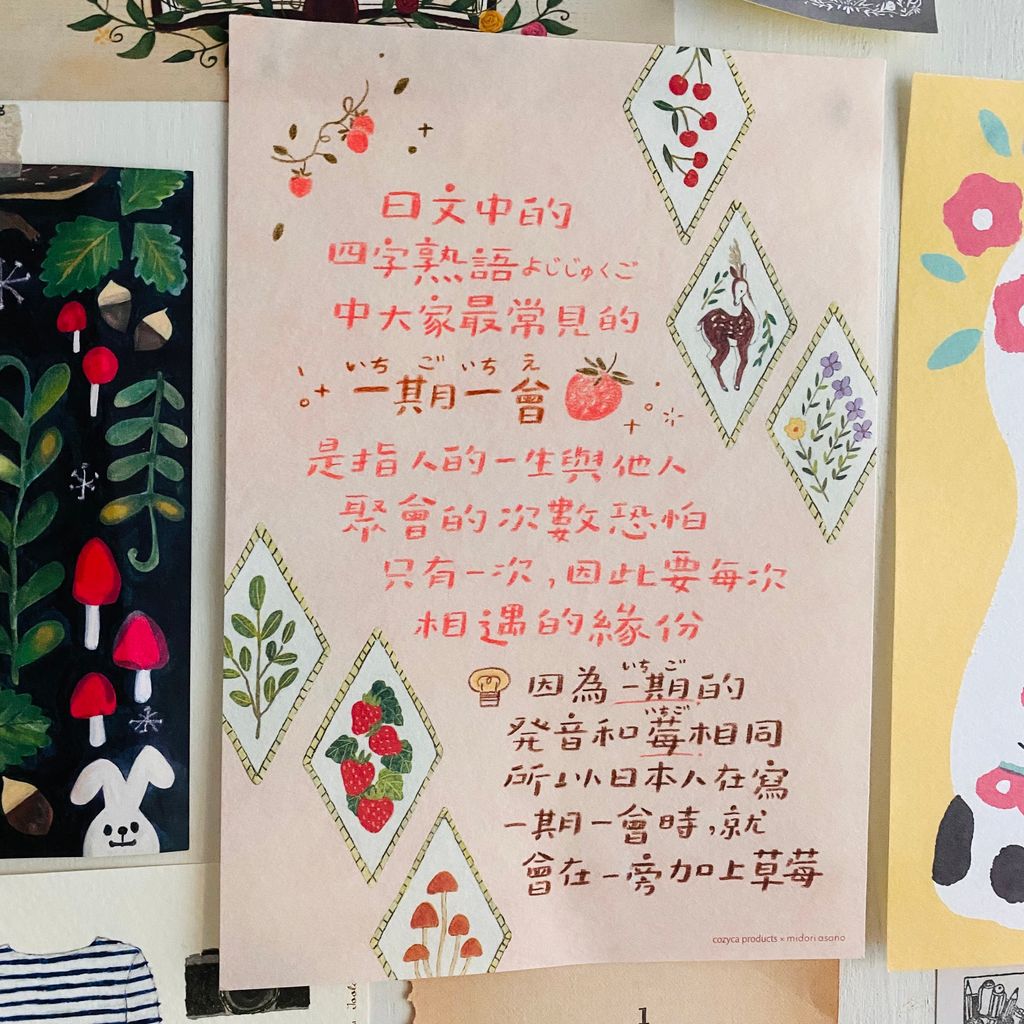 日文中的
四字熟語よじじゅくご
中大家最常見的
いち ご いち え
一期一會
是指人的一生與他人
聚會的次數恐怕
只有一次,因此要每次
相遇的緣份
いち ご
因為一期的
いちご
発音和莓相同
所以日本人在寫
一期一會時,就
會在一旁加上草莓
cozyca products × midori asano
1